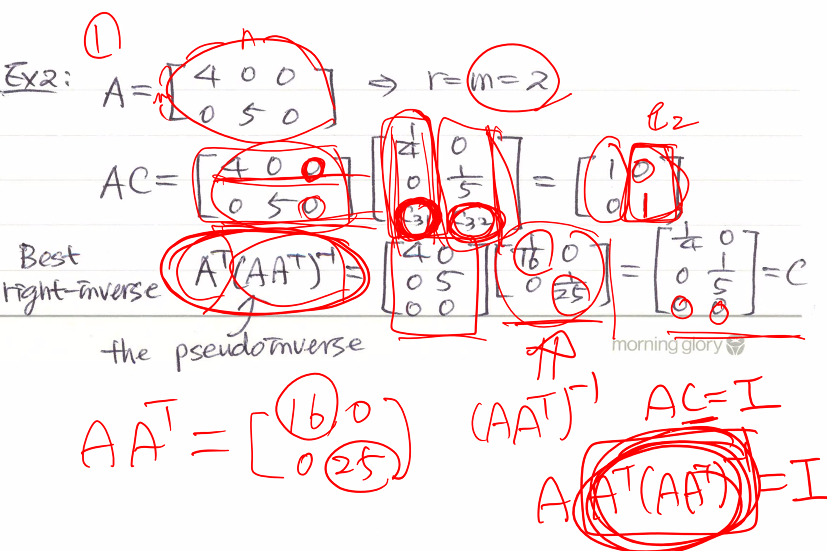 ①
A
Ex2: A = [4 0 0; 0 5 0] ⇒ r = m = 2
m
e₂
AC = [4 0 0; 0 5 0] [1/4 0; 0 1/5; c31 c32] = [1 0; 0 1]
Best right-inverse Aᵀ(AAᵀ)⁻¹ = [4 0; 0 5; 0 0] [1/16 0; 0 1/25] = [1/4 0; 0 1/5; 0 0] = C
the pseudoinverse
morning glory
AAᵀ = [16 0; 0 25] (AAᵀ)⁻¹
AC = I
A Aᵀ(AAᵀ)⁻¹ = I